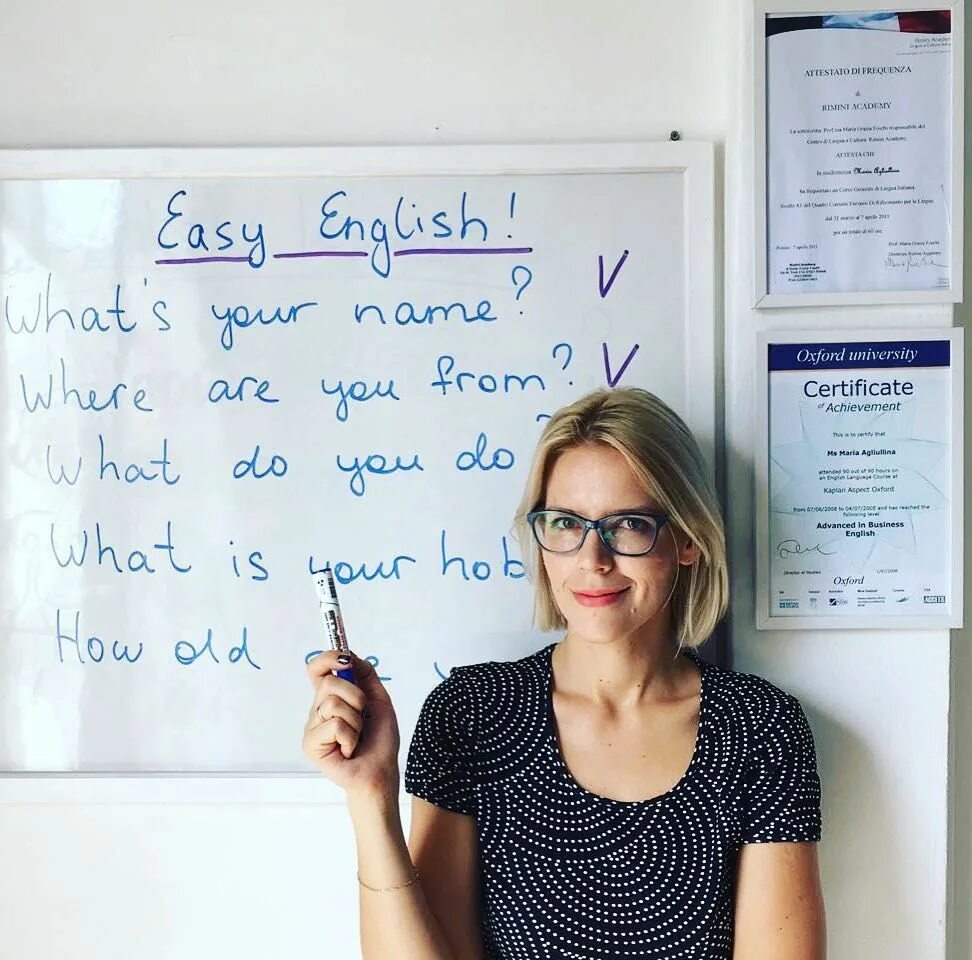 Easy English!
What's your name? V
Where are you from? V
What do you do ?
What is your hob
How old
ATTESTATO DI FREQUENZA
di
RIMINI ACADEMY
La sottoscritta Prof.ssa Maria Grazia Foschi responsabile del
Centro di Lingua e Cultura Rimini Academy,
ATTESTA CHE
lo studente/ssa Maria Agliullina
ha frequentato un Corso Generale di Lingua Italiana,
del Quadro Comune Europeo Di Riferimento per le Lingue
dal 21 marzo al 7 aprile 2011
per un totale di 60 ore
Rimini 7 aprile 2011
Prof. Maria Grazia Foschi
Direttrice Rimini Academy
Oxford university
Certificate
of Achievement
This is to certify that
Ms Maria Agliullina
attended 90 out of 90 hours on
an English Language Course at
Kaplan Aspect Oxford
from 07/06/2008 to 04/07/2008 and has reached the
following level
Advanced in Business
English
Director of Studies
Oxford